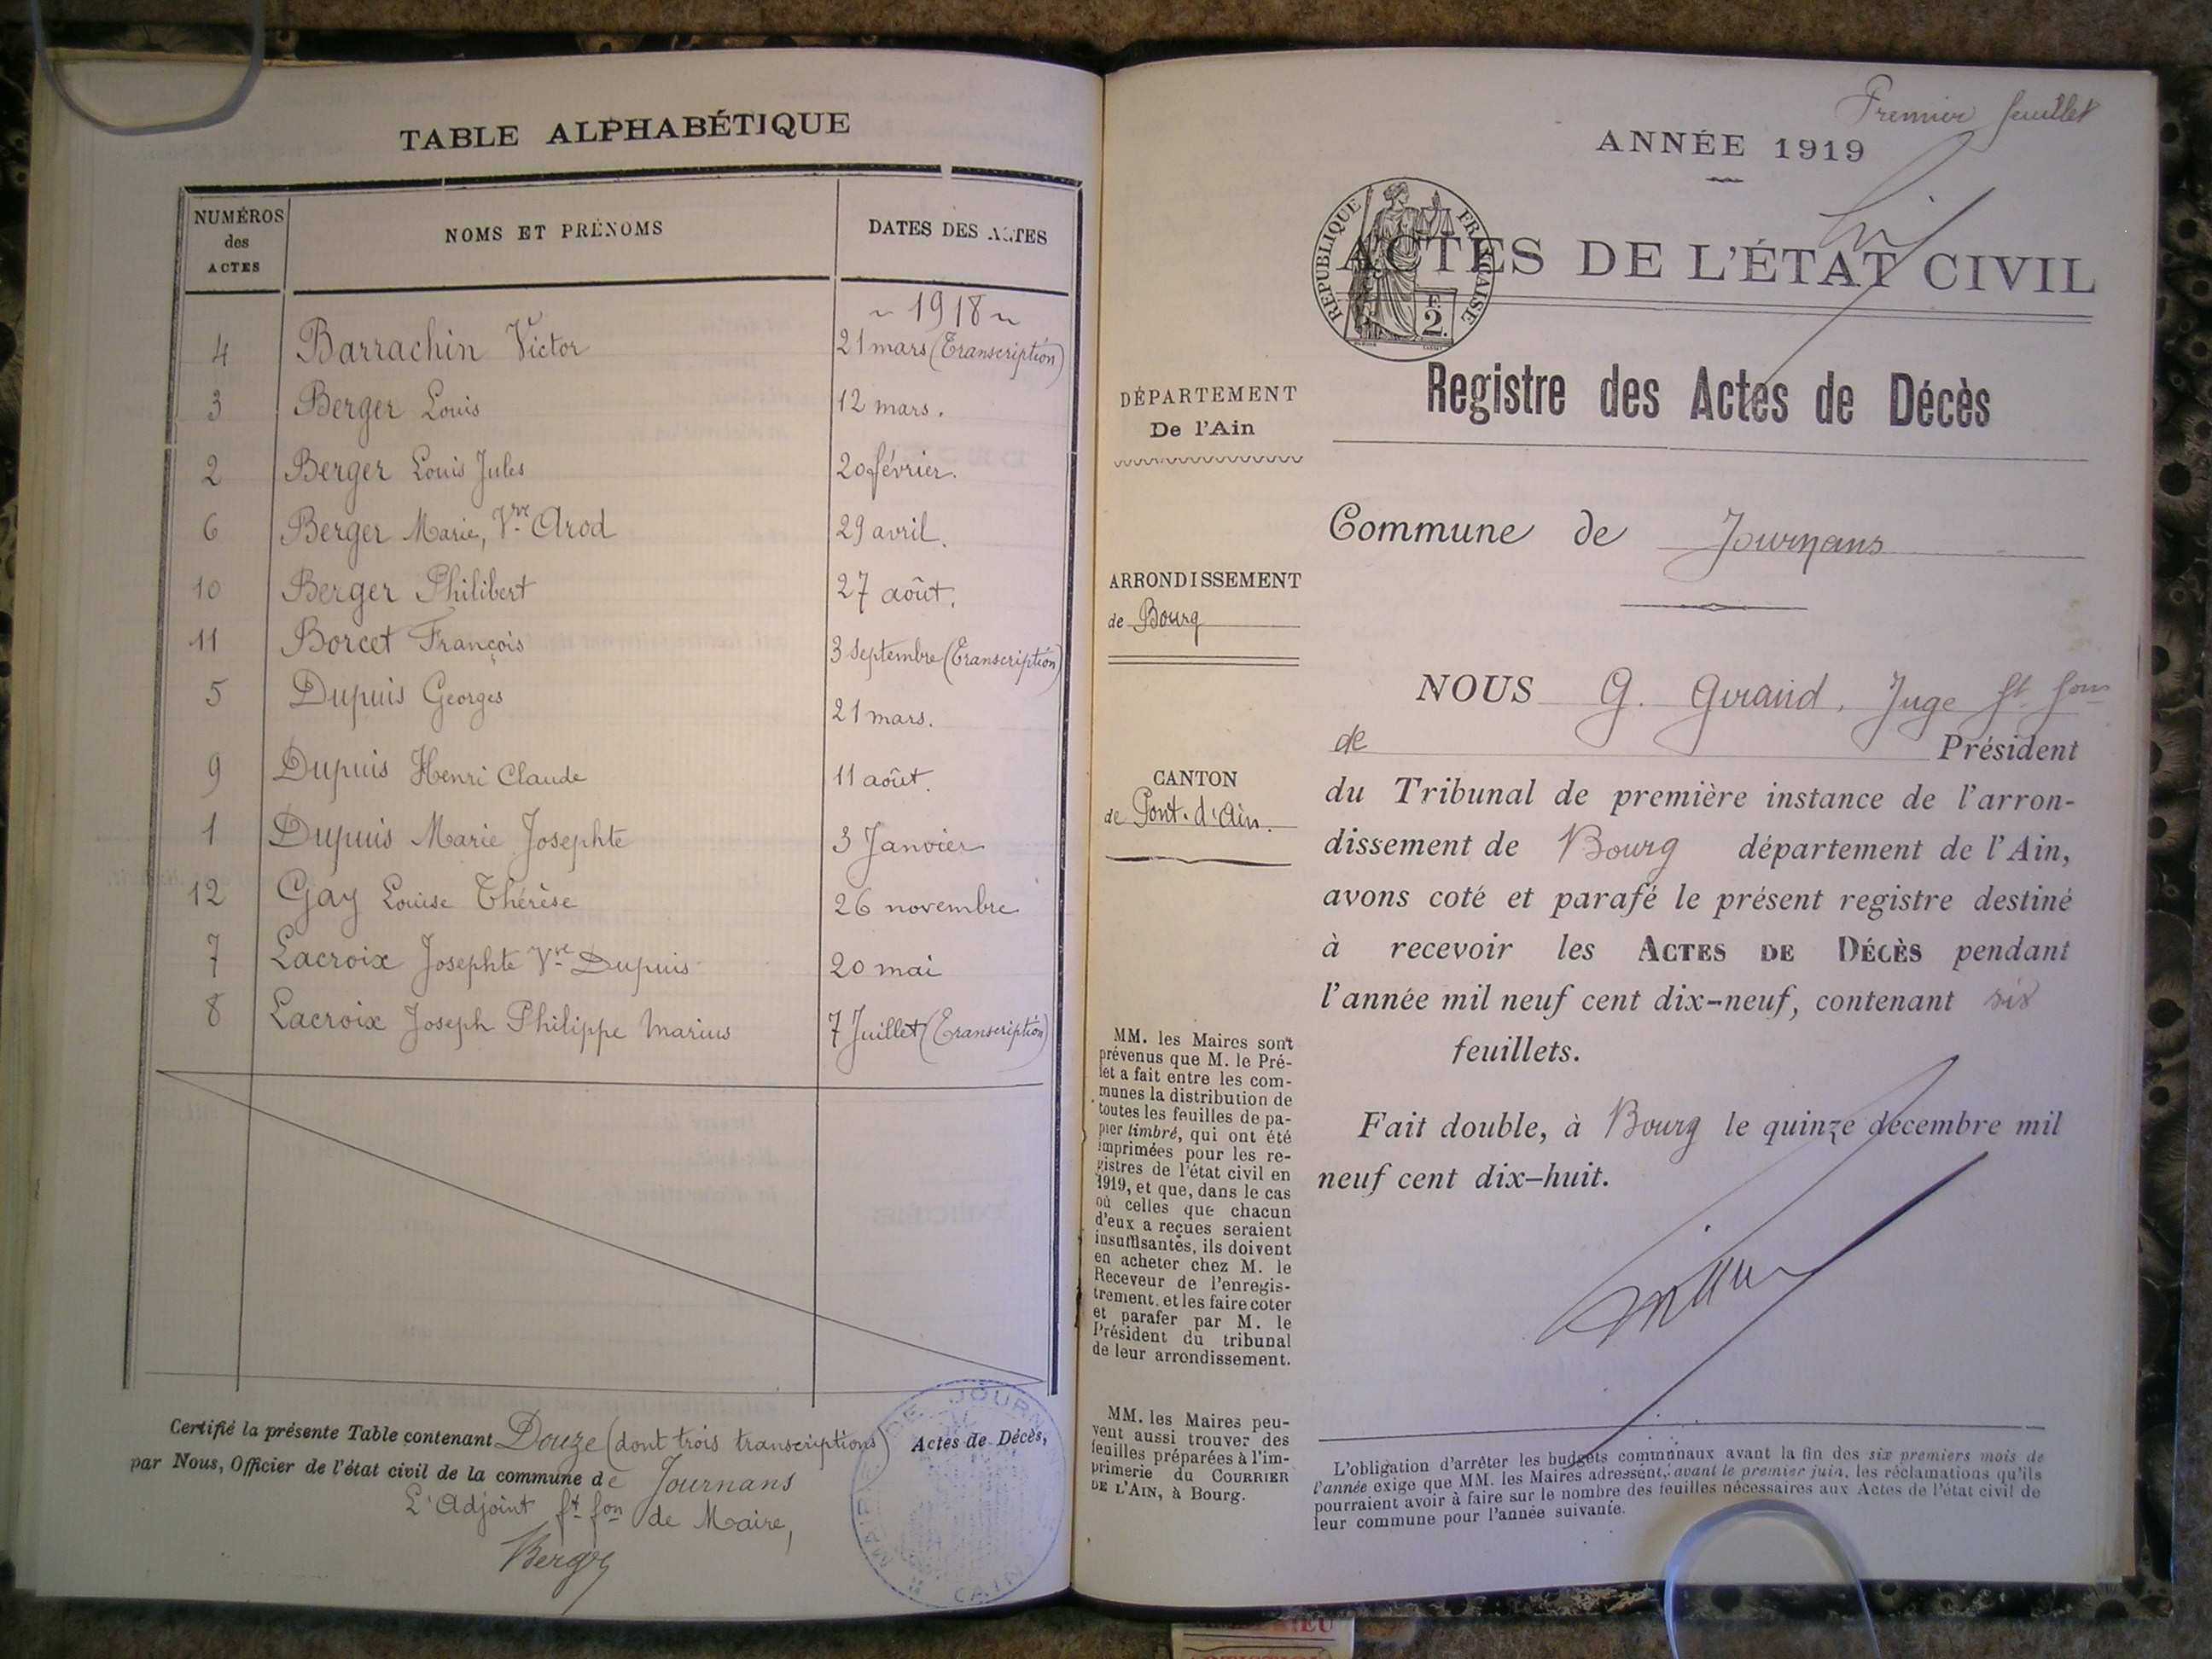 TABLE ALPHABÉTIQUE
NUMÉROS
des
ACTES
NOMS ET PRÉNOMS
DATES DES ACTES
~ 1918 ~
4 Barrachin Victor 21 mars (Transcription)
3 Berger Louis 12 mars.
2 Berger Louis Jules 20 février.
6 Berger Marie, Vve Arod 29 avril.
10 Berger Philibert 27 août.
11 Borcet François 3 Septembre (Transcription)
5 Dupuis Georges 21 mars.
9 Dupuis Henri Claude 11 août.
1 Dupuis Marie Josephte 3 Janvier
12 Gay Louise Thérèse 26 novembre
7 Lacroix Josephte Vve Dupuis 20 mai
8 Lacroix Joseph Philippe Marius 7 Juillet (Transcription)
Certifié la présente Table contenant Douze (dont trois transcriptions) Actes de Décès,
par Nous, Officier de l'état civil de la commune de Journans
L'Adjoint ft fon de Maire,
Berger
MAIRIE DE JOURNANS
(AIN)
Premier feuillet
ANNÉE 1919
RÉPUBLIQUE FRANÇAISE
F.
2.
ACTES DE L'ÉTAT CIVIL
Registre des Actes de Décès
DÉPARTEMENT
De l'Ain
Commune de Journans
ARRONDISSEMENT
de Bourg
CANTON
de Pont-d'Ain.
NOUS G. Giraud, Juge ft fons
de Président
du Tribunal de première instance de l'arron-
dissement de Bourg département de l'Ain,
avons coté et parafé le présent registre destiné
à recevoir les ACTES DE DÉCÈS pendant
l'année mil neuf cent dix-neuf, contenant six
feuillets.
Fait double, à Bourg le quinze décembre mil
neuf cent dix-huit.
MM. les Maires sont
prévenus que M. le Pré-
fet a fait entre les com-
munes la distribution de
toutes les feuilles de pa-
pier timbré, qui ont été
imprimées pour les re-
gistres de l'état civil en
1919, et que, dans le cas
où celles que chacun
d'eux a reçues seraient
insuffisantes, ils doivent
en acheter chez M. le
Receveur de l'enregis-
trement, et les faire coter
et parafer par M. le
Président du tribunal
de leur arrondissement.
MM. les Maires peu-
vent aussi trouver des
feuilles préparées à l'im-
primerie du COURRIER
DE L'AIN, à Bourg.
L'obligation d'arrêter les budgets communaux avant la fin des six premiers mois de
l'année exige que MM. les Maires adressent, avant le premier juin, les réclamations qu'ils
pourraient avoir à faire sur le nombre des feuilles nécessaires aux Actes de l'état civil de
leur commune pour l'année suivante.